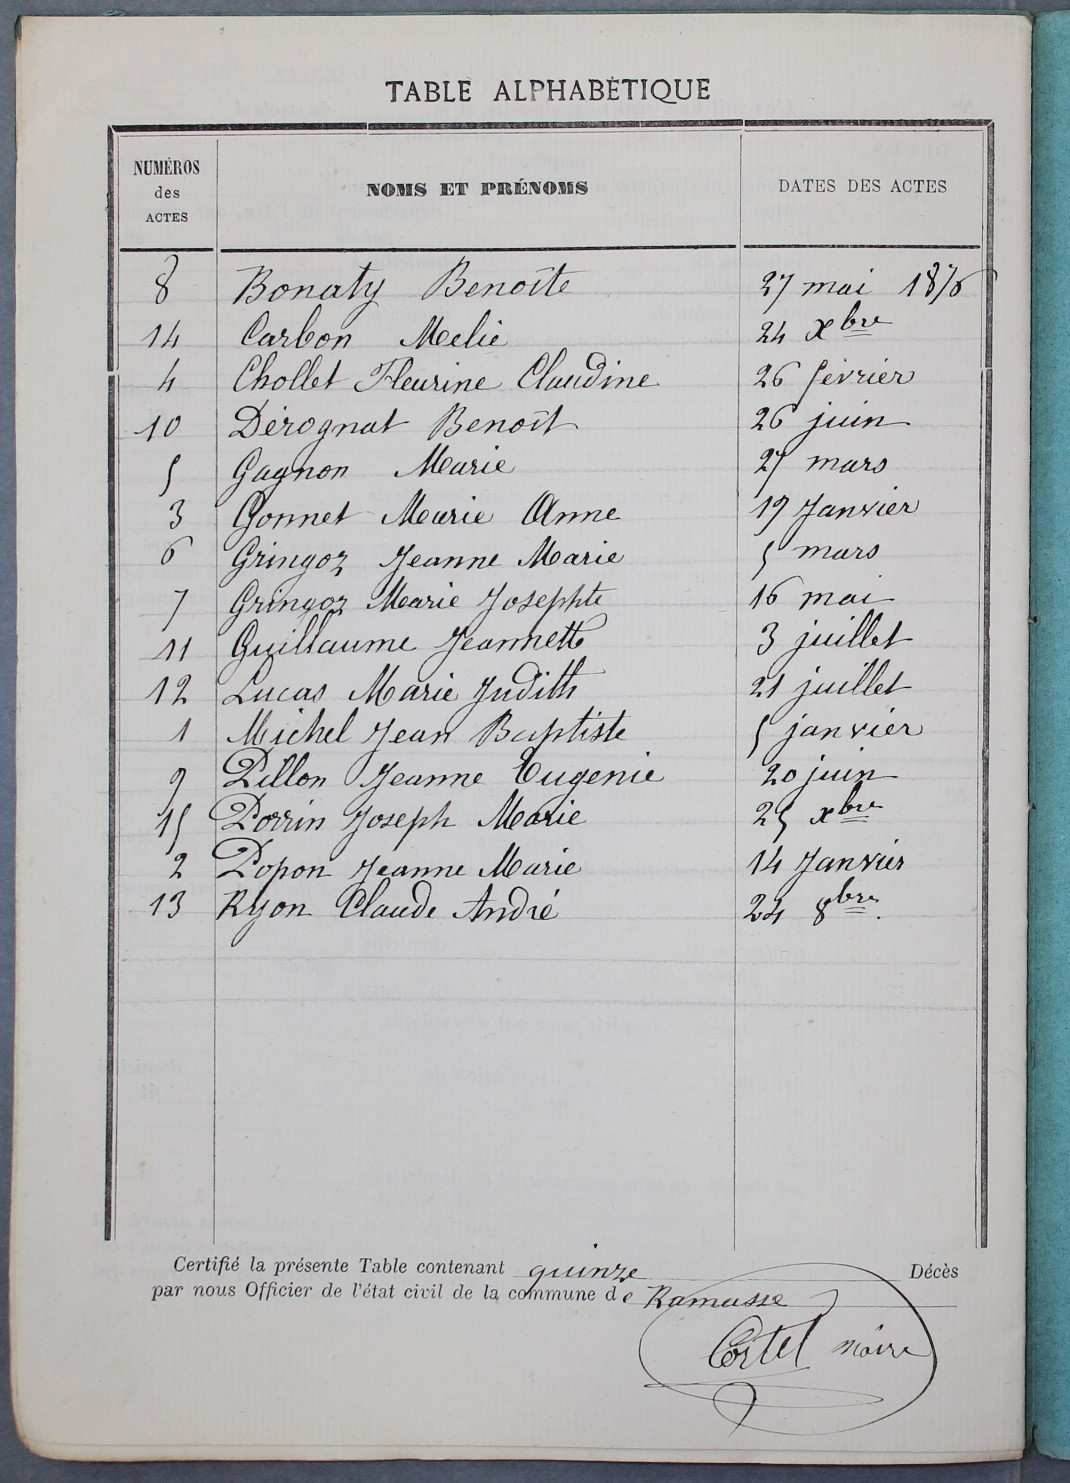 TABLE ALPHABÉTIQUE
NUMÉROS des ACTES NOMS ET PRÉNOMS DATES DES ACTES
8 Bonaty Benoîte 27 mai 1876
14 Carbon Melie 24 Xbre
4 Chollet Fleurine Claudine 26 février
10 Dérognat Benoît 26 juin
5 Gagnon Marie 27 mars
3 Gonnet Marie Anne 19 Janvier
6 Gringoz Jeanne Marie 5 mars
7 Gringoz Marie Josephte 16 mai
11 Guillaume Jeannette 3 juillet
12 Lucas Marie Judith 21 juillet
1 Michel Jean Baptiste 5 janvier
9 Pillon Jeanne Eugenie 20 juin
15 Porrin Joseph Marie 25 xbre
2 Popon Jeanne Marie 14 Janvier
13 Ryon Claude André 24 8bre.
Certifié la présente Table contenant quinze Décès
par nous Officier de l'état civil de la commune de Ramasse
Cortel maire